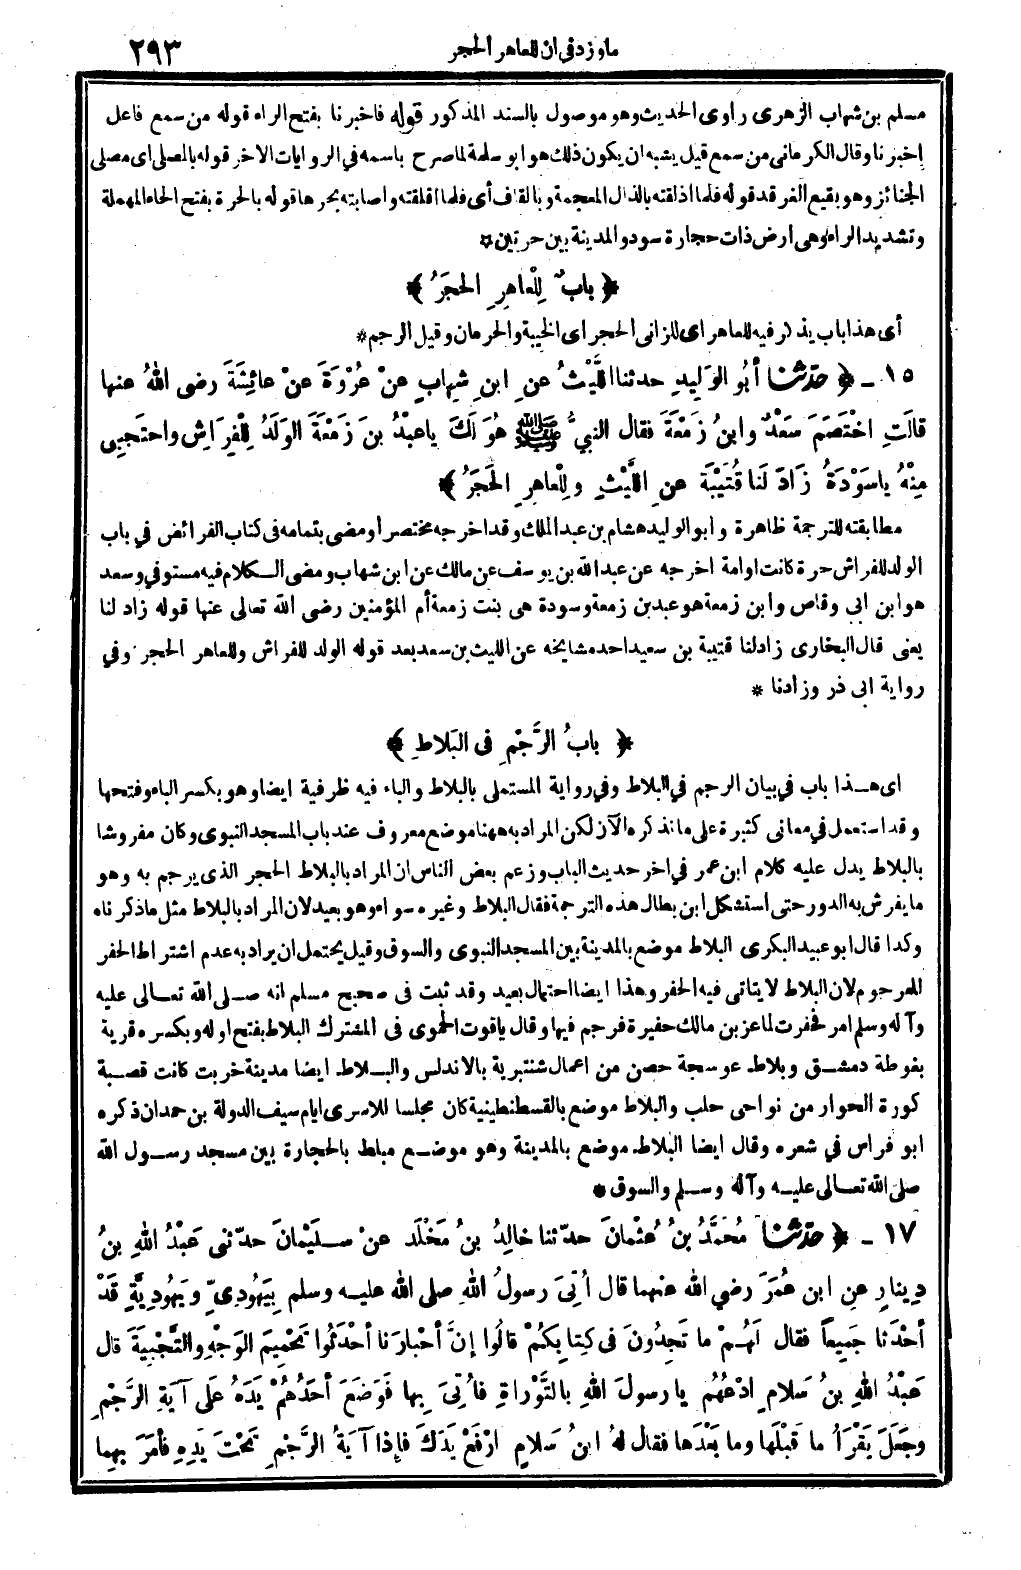 ماورد في ان للعاهر الحجر
٢٩٣
مسلم بن شهاب الزهرى راوى الحديث وهو موصول بالسند المذكور قوله فاخبرنا بفتح الراء قوله من سمع فاعل
اخبرنا وقال الكرمانى من سمع قيل يشبه ان يكون ذلك هو ابو سلمة لما صرح باسمه في الروايات الاخر قوله بالمصلى اى مصلى
الجنائز وهو بقيع الغرقد قوله فلما اذلقته بالذال المعجمة وبالقاف أى فلما اقلقته واصابته بحرها قوله بالحرة بفتح الحاء المهملة
وتشديد الراء وهى أرض ذات حجارة سود والمدينة بين حرتين *
﴿ بابٌ لِلْعاهِرِ الحَجَرُ ﴾
أى هذا باب يذكر فيه للعاهر اى للزانى الحجر اى الخيبة والحرمان وقيل الرجم *
١٥ - ﴿ حدّثنا أبُو الوَلِيدِ حدثنا اللَّيْثُ عنِ ابنِ شِهابٍ عنْ عُرْوَةَ عنْ عائِشَةَ رضى اللهُ عنها
قالَتِ اخْتَصَمَ سَعْدٌ وابنُ زَمْعَةَ فقال النبيُّ ﷺ هُوَ لَكَ ياعبْدُ بنَ زَمْعَةَ الوَلَدُ لِلْفِرَاشِ واحتجِبى
مِنْهُ ياسَوْدَةُ زَادَ لَنا قُتَيْبَةُ عنِ اللَّيْثِ ولِلْعاهِرِ الحَجَرُ ﴾
مطابقته للترجمة ظاهرة وابو الوليد هشام بن عبد الملك وقد اخرجه مختصرا ومضى بتمامه فى كتاب الفرائض في باب
الولد للفراش حرة كانت او امة اخرجه عن عبد الله بن يوسف عن مالك عن ابن شهاب ومضى الكلام فيه مستوفي وسعد
هو ابن ابي وقاص وابن زمعة هو عبد بن زمعة وسودة هى بنت زمعة أم المؤمنين رضى الله تعالى عنها قوله زاد لنا
يعنى قال البخارى زاد لنا قتيبة بن سعيد احد مشايخه عن الليث بن سعد بعد قوله الولد للفراش وللعاهر الحجر وفي
رواية ابى ذر وزادنا *
﴿ بابُ الرَّجْمِ فى البَلاطِ ﴾
اى هذا باب في بيان الرجم في البلاط وفي رواية المستملى بالبلاط والباء فيه ظرفية ايضا وهو بكسر الباء وفتحها
وقد استعمل في معانى كثيرة على ما نذكره الآن لكن المراد به ههنا موضع معروف عند باب المسجد النبوى وكان مفروشا
بالبلاط يدل عليه كلام ابن عمر في اخر حديث الباب وزعم بعض الناس ان المراد بالبلاط الحجر الذى يرجم به وهو
ما يفرش به الدور حتى أستشكل ابن بطال هذه الترجمة فقال البلاط وغيره سواء وهو بعيد لان المراد بالبلاط مثل ما ذكرناه
وكذا قال ابو عبيد البكرى البلاط موضع بالمدينة بين المسجد النبوى والسوق وقيل يحتمل ان يراد به عدم اشتراط الحفر
للمرجوم لان البلاط لا يتاتى فيه الحفر وهذا ايضا احتمال بعيد وقد ثبت فى صحيح مسلم انه صلى الله تعالى عليه
وآله وسلم امر فحفرت لماعز بن مالك حفيرة فرجم فيها وقال ياقوت الحموى فى المشترك البلاط بفتح اوله وبكسره قرية
بغوطة دمشق وبلاط عوسجة حصن من اعمال شنتبرية بالاندلس والبلاط ايضا مدينة خربت كانت قصبة
كورة الحوار من نواحى حلب والبلاط موضع بالقسطنطينية كان مجلسا للاسرى ايام سيف الدولة بن حمدان ذكره
ابو فراس في شعره وقال ايضا البلاط موضع بالمدينة وهو موضع مبلط بالحجارة بين مسجد رسول الله
صلى الله تعالى عليه وآله وسلم والسوق *
١٧ - ﴿ حدّثنا مُحَمَّدُ بنُ عُثْمانَ حدّثنا خالِدُ بنُ مَخْلَدٍ عنْ سُلَيْمانَ حدّثنى عَبْدُ اللهِ بنُ
دِينارٍ عنِ ابنِ عُمَرَ رضي الله عنهما قال أُتِىَ رسولُ اللهِ صلى الله عليه وسلم بِيَهُودِىٍّ ويَهُودِيَّةٍ قَدْ
أحْدَثا جَمِيعاً فقال لَهُمْ ما تَجِدُونَ فى كِتابِكُمْ قالُوا إنَّ أحْبارَنا أحْدَثُوا تَحْمِيمَ الوَجْهِ والتَّجْبِيَةَ قال
عَبْدُ اللهِ بنُ سَلامٍ ادْعُهُمْ يا رسولَ اللهِ بالتَّوْراةِ فأُتِىَ بِها فَوَضَعَ أحَدُهُمْ يَدَهُ عَلَى آيَةِ الرَّجْمِ
وجَعَلَ يَقْرَأُ ما قَبْلَها وما بَعْدَها فقال لهُ ابنُ سَلامٍ ارْفَعْ يَدَكَ فإذا آيَةُ الرَّجْمِ تَحْتَ يَدِهِ فأمَرَ بِهِما